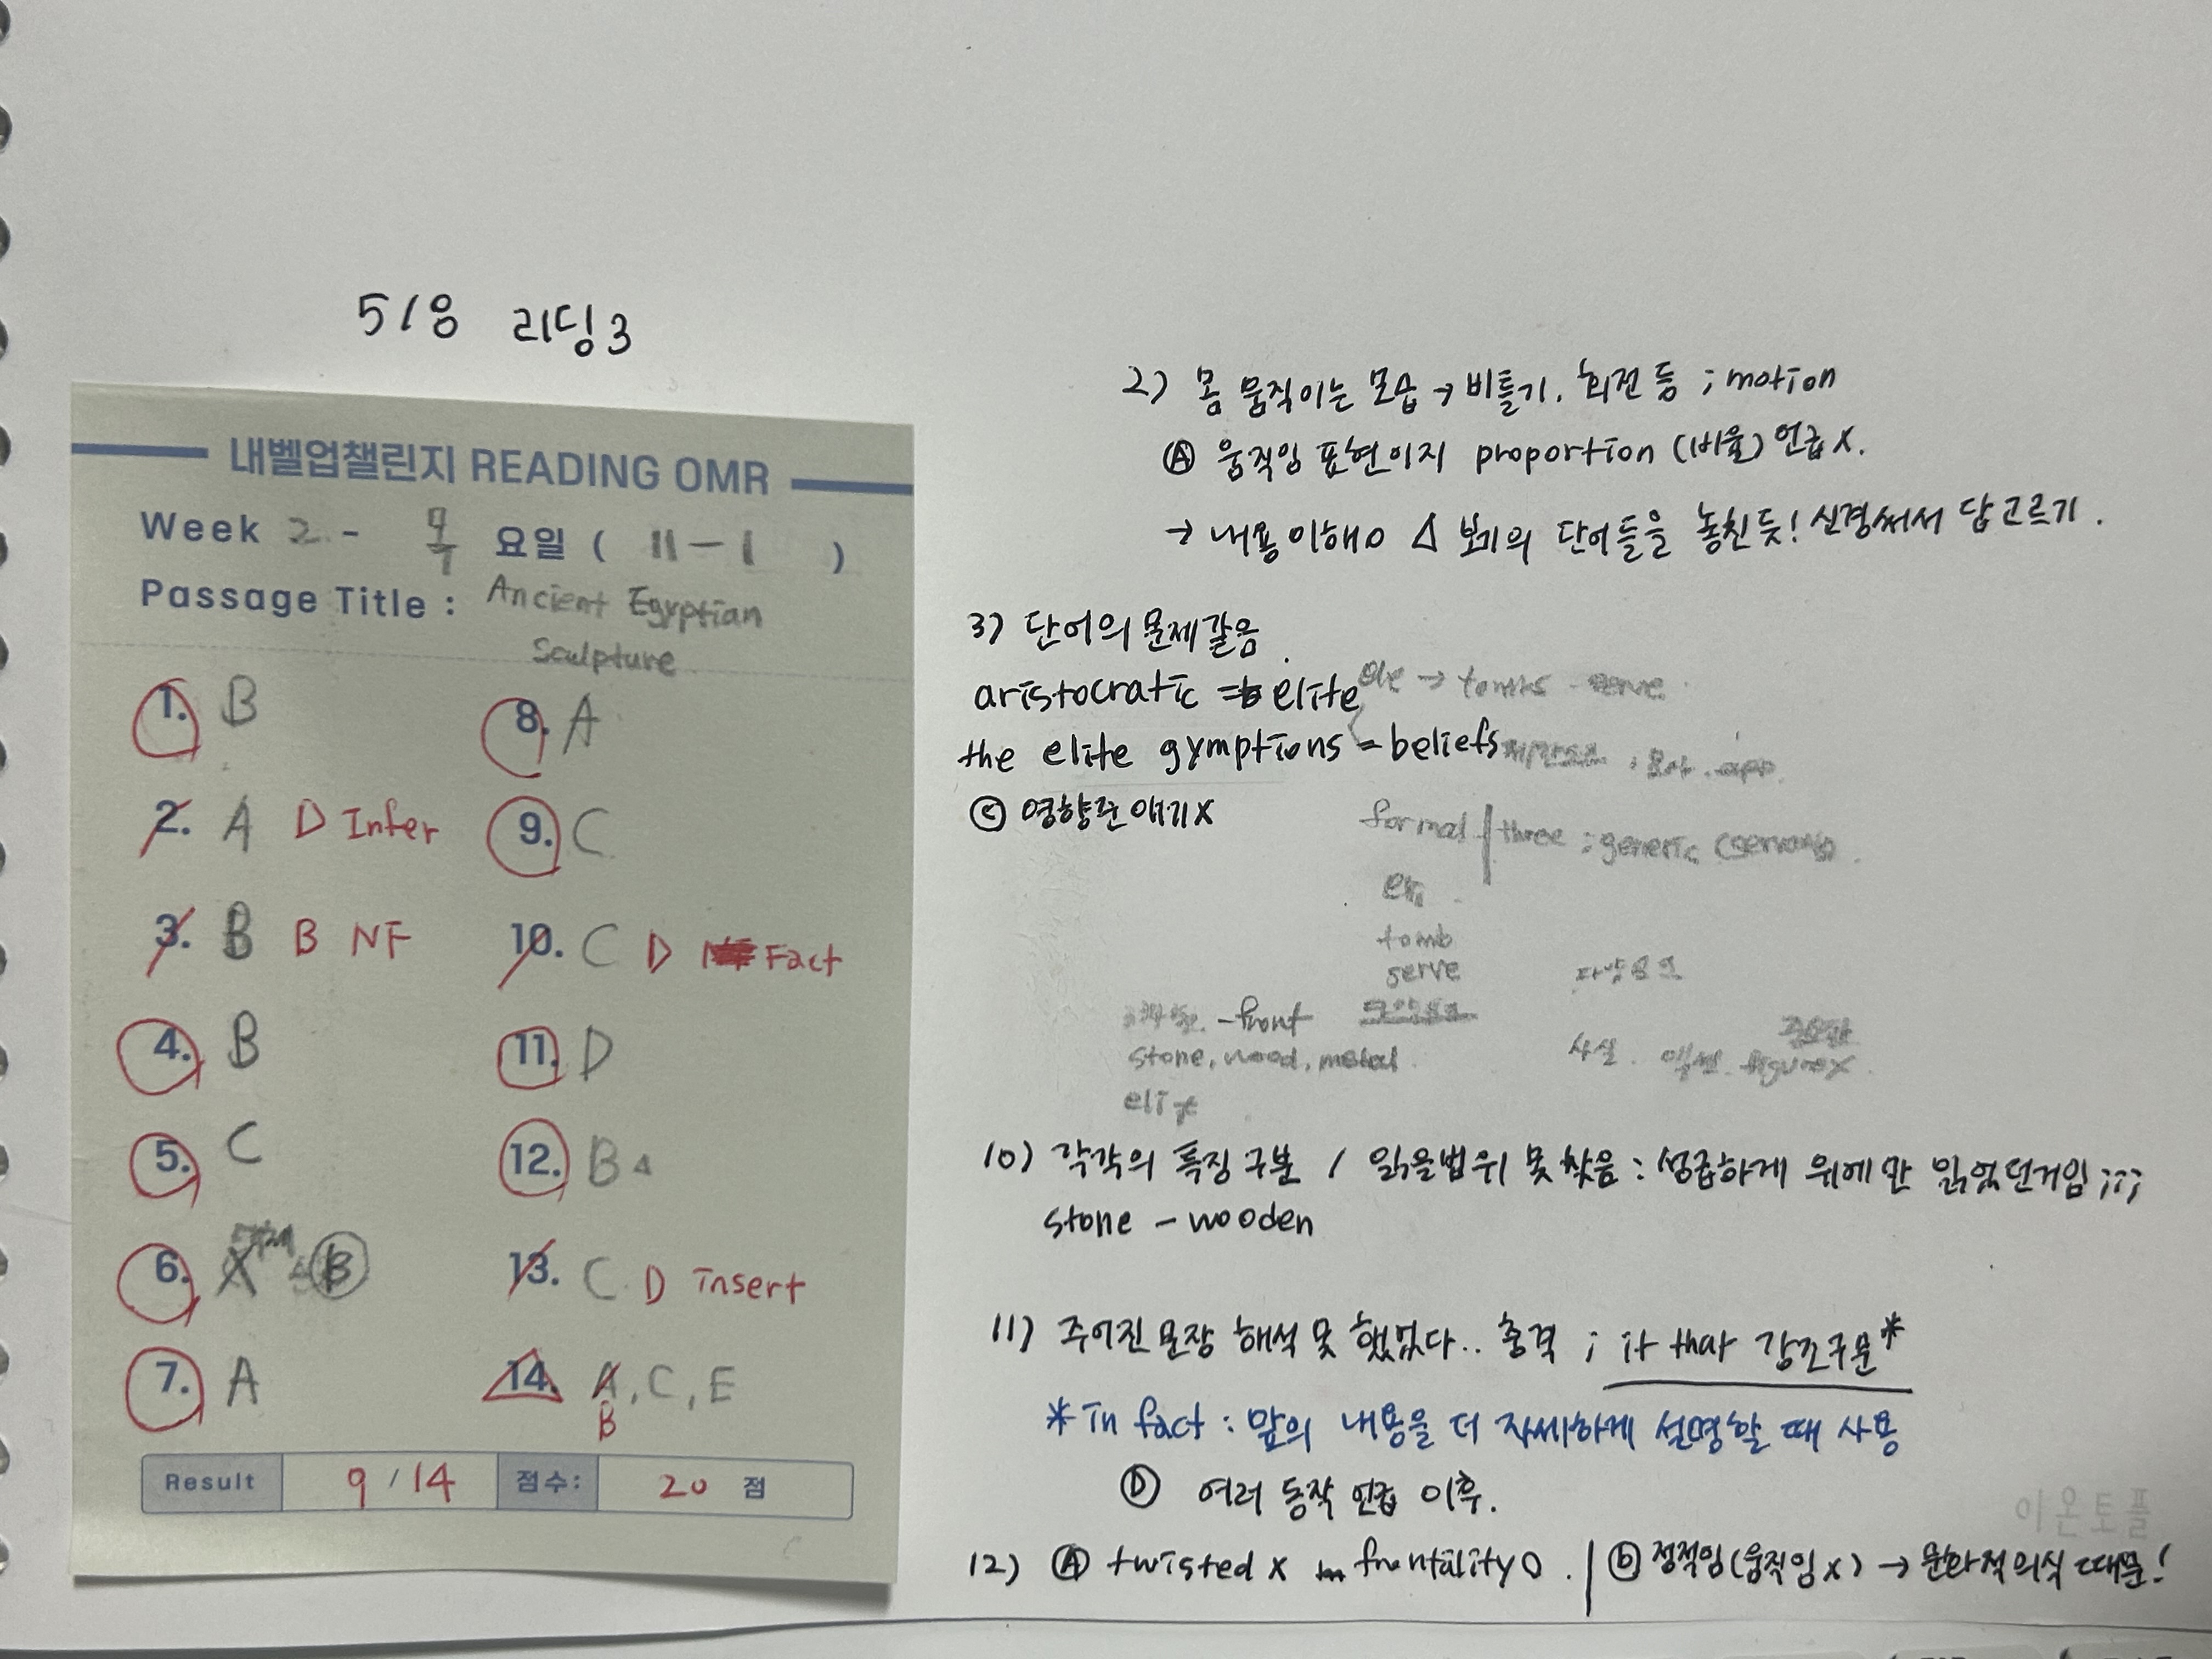 518 리딩3
내벨업챌린지 READING OMR
Week 2 - 요일 ( 11-1 )
Passage Title : Ancient Egyptian
Sculpture
1. B
2. A D Infer
3. B B NF
4. B
5. C
6. X B
7. A
8. A
9. C
10. C D Fact
11. D
12. B
13. C D insert
14. A, C, E
B
Result 9/14 점수: 20 점
2) 몸 움직이는 모습 → 비틀기. 회전 등 ; motion
Ⓐ 움직임 표현이지 proportion (비율) 언급 X.
→ 내용이해O △ 보기의 단어들을 놓친듯! 신경써서 답 고르기.
3) 단어의 문제같음.
aristocratic = elite → tombs - serve
the elite gymptions = beliefs
Ⓒ 영향준 얘기X
formal three ; generic (servants)
tomb
serve
- front
stone, wood, metal.
사실. figure X.
elite
10) 각각의 특징 구분 / 읽을범위 못 찾음 : 성급하게 위에만 읽었던거임 ;;;
stone - wooden
11) 주어진 문장 해석 못 했었다.. 충격 ; it that 강조구문*
* In fact : 앞의 내용을 더 자세하게 설명할 때 사용
Ⓓ 여러 동작 언급 이후.
이온토플
12) Ⓐ twisted X frontality O. | ⓑ 정적임(움직임X) → 문화적의식 때문!